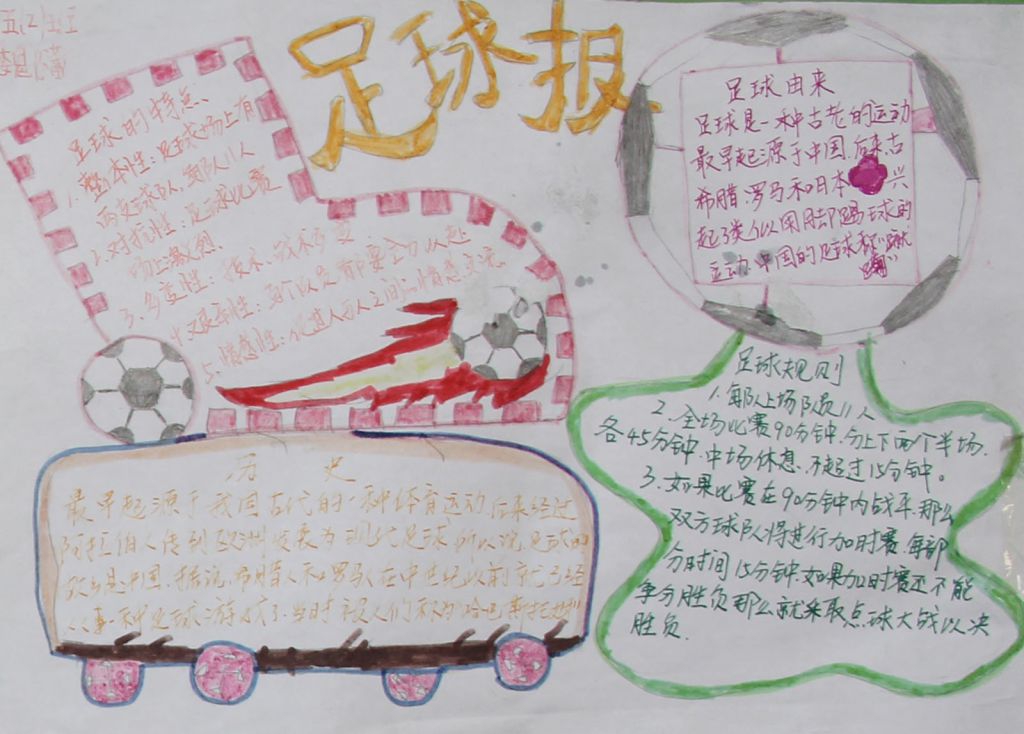 足球报
足球的特点
1.整本性:足球场上有
两支球队,每队11人
2.对抗性:足球比赛
场上激烈.
3.多变性:技术、战术多变
4.艰辛性:两个以足都要全力以赴
5.情感性:促进人与人之间的情感交流
足球由来
足球是一种古老的运动
最早起源于中国,后来,古
希腊,罗马和日本 兴
起了类似用脚踢球的
运动.中国的足球称"蹴
足球规则
1.每队上场队员11人
2.全场比赛90分钟,分上下两个半场.
各45分钟.中场休息.不超过15分钟。
3.如果比赛在90分钟内战平,那么
双方球队将进行加时赛.每部
分时间15分钟.如果加时赛还不能
争分胜负那么就采取点球大战以决
胜负.
历史
最早起源于我国古代的一种体育运动,后来经过
阿拉伯人传到欧洲发展为现代足球 所以说,足球的
故乡是中国.据说,希腊人和罗马人在中世纪以前就已经
从事一种足球游戏了.当时